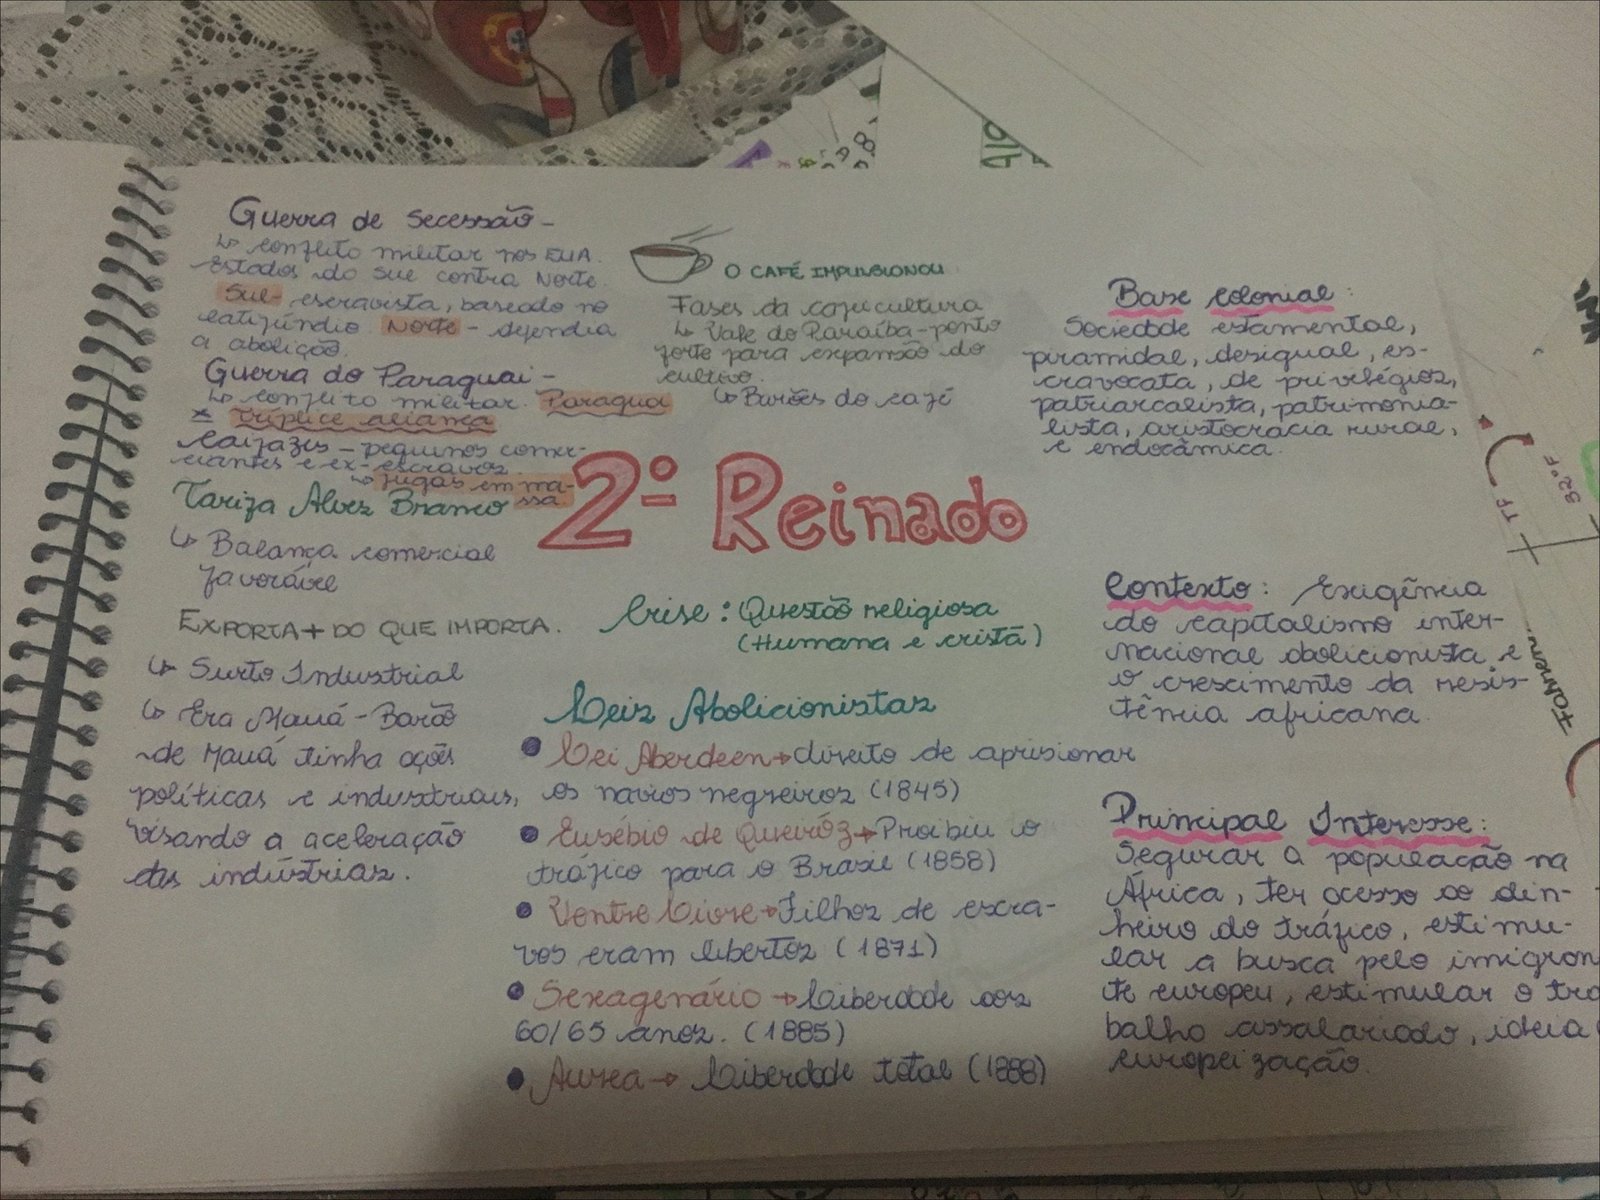 Guerra de Secessão -
↳ conflito militar nos EUA.
Estados do Sul contra Norte.
Sul - escravista, baseado no
latifúndio. Norte - defendia
a abolição.
Guerra do Paraguai -
↳ conflito militar. Paraguai
x Tríplice aliança
Caifazes - pequenos comer-
ciantes e ex-escravos.
↳ fugas em ma-
ssa.
Tarifa Alves Branco
↳ Balança comercial
favorável
EXPORTA + DO QUE IMPORTA.
↳ Surto Industrial
↳ Era Mauá - Barão
de Mauá tinha ações
políticas e industriais,
visando a aceleração
das indústrias.
O CAFÉ IMPULSIONOU
Fases da cafeicultura
↳ Vale do Paraíba - ponto
forte para expansão do
cultivo.
↳ Barões do café
2º Reinado
Crise: Questão religiosa
(Humana e cristã)
Leis Abolicionistas
• Lei Aberdeen → direito de aprisionar
os navios negreiros (1845)
• Eusébio de Queiróz → Proibiu o
tráfico para o Brasil (1858)
• Ventre Livre → Filhos de escra-
vos eram libertos (1871)
• Sexagenário → Liberdade aos
60/65 anos. (1885)
• Aurea → Liberdade total (1888)
Base colonial:
Sociedade estamental,
piramidal, desigual, es-
cravocata, de privilégios,
patriarcalista, patrimonia-
lista, aristocracia rural,
e endocâmica.
Contexto: Exigência
do capitalismo inter-
nacional abolicionista e
o crescimento da resis-
tência africana.
Principal Interesse:
Segurar a população na
África, ter acesso ao din-
heiro do tráfico, estimu-
lar a busca pelo imigran
te europeu, estimular o tra
balho assalariado, ideia
europeização.
TF
32°F